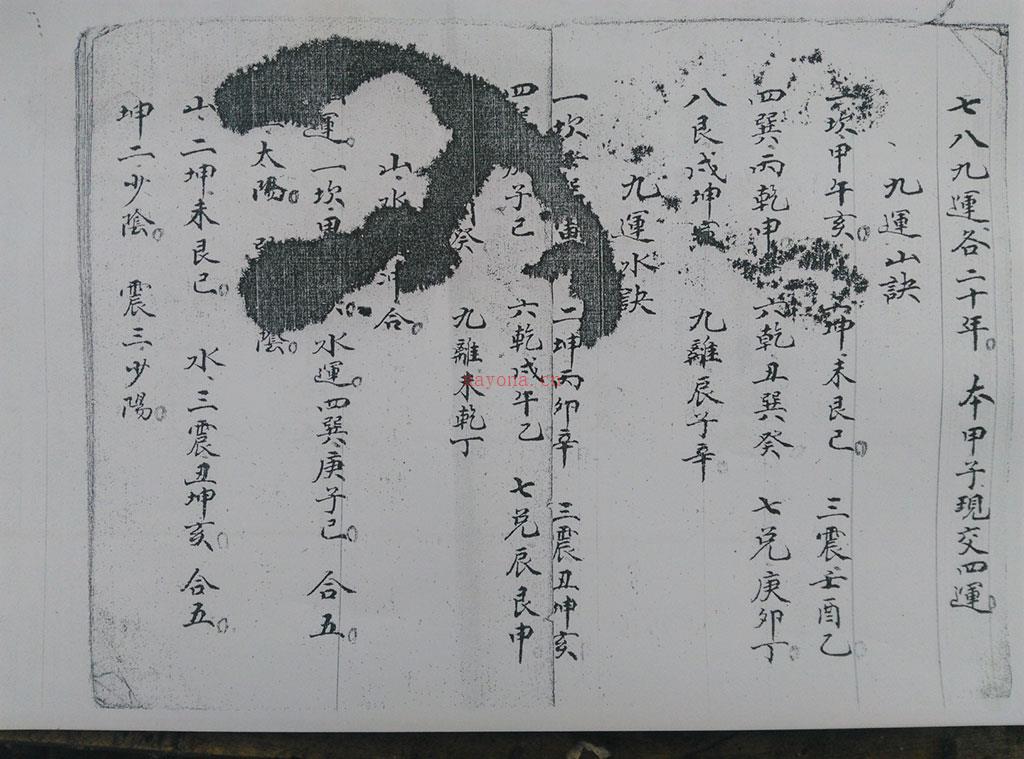 七八九運各二十年。 本甲子現交四運。
九運山訣
一坎甲午亥。 二坤未艮己。 三震壬酉乙
四巽丙乾申 六乾丑巽癸 七兌庚卯丁
八艮戌坤寅 九離辰子辛
九運水訣
一坎 寅 二坤丙卯辛 三震丑坤亥
四 子己 六乾戌午乙 七兌辰艮申
癸 九離未乾丁
山水 沖合。
運一坎甲 水運。四巽庚子己。 合五。
太陽。 陰。
山二坤未艮己。 水三震丑坤亥。 合五。
坤二少陰。 震三少陽。
nayona.cn